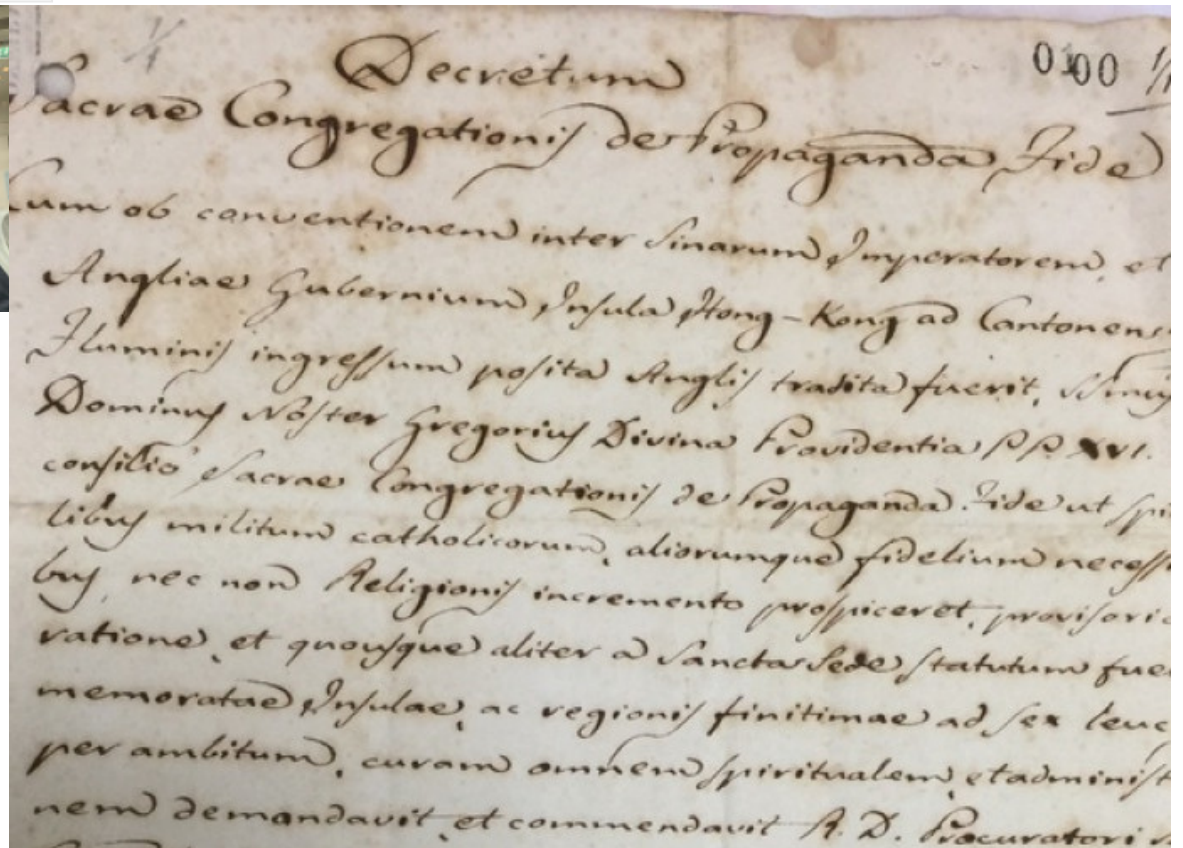 1/1
Decretum
0100 1/1
Sacrae Congregationis de Propaganda Fide
Cum ob conventionem inter Sinarum Imperatorem, et
Angliae Gubernium Insula Hong-Kong ad Cantonens
Fluminis ingressum posita Anglis tradita fuerit, SSmus
Dominus Noster Gregorius Divina Providentia PP. XVI.
consilio Sacrae Congregationis de Propaganda Fide ut spi
libus militum catholicorum, aliorumque fidelium necess
bus, nec non Religionis incremento prospiceret, provisoria
ratione, et quousque aliter a Sancta Sede statutum fue
memoratae Insulae, ac regionis finitimae ad sex leuc
per ambitum, curam omnem spiritualem, et administ
nem demandavit, et commendavit R. D. Procuratori